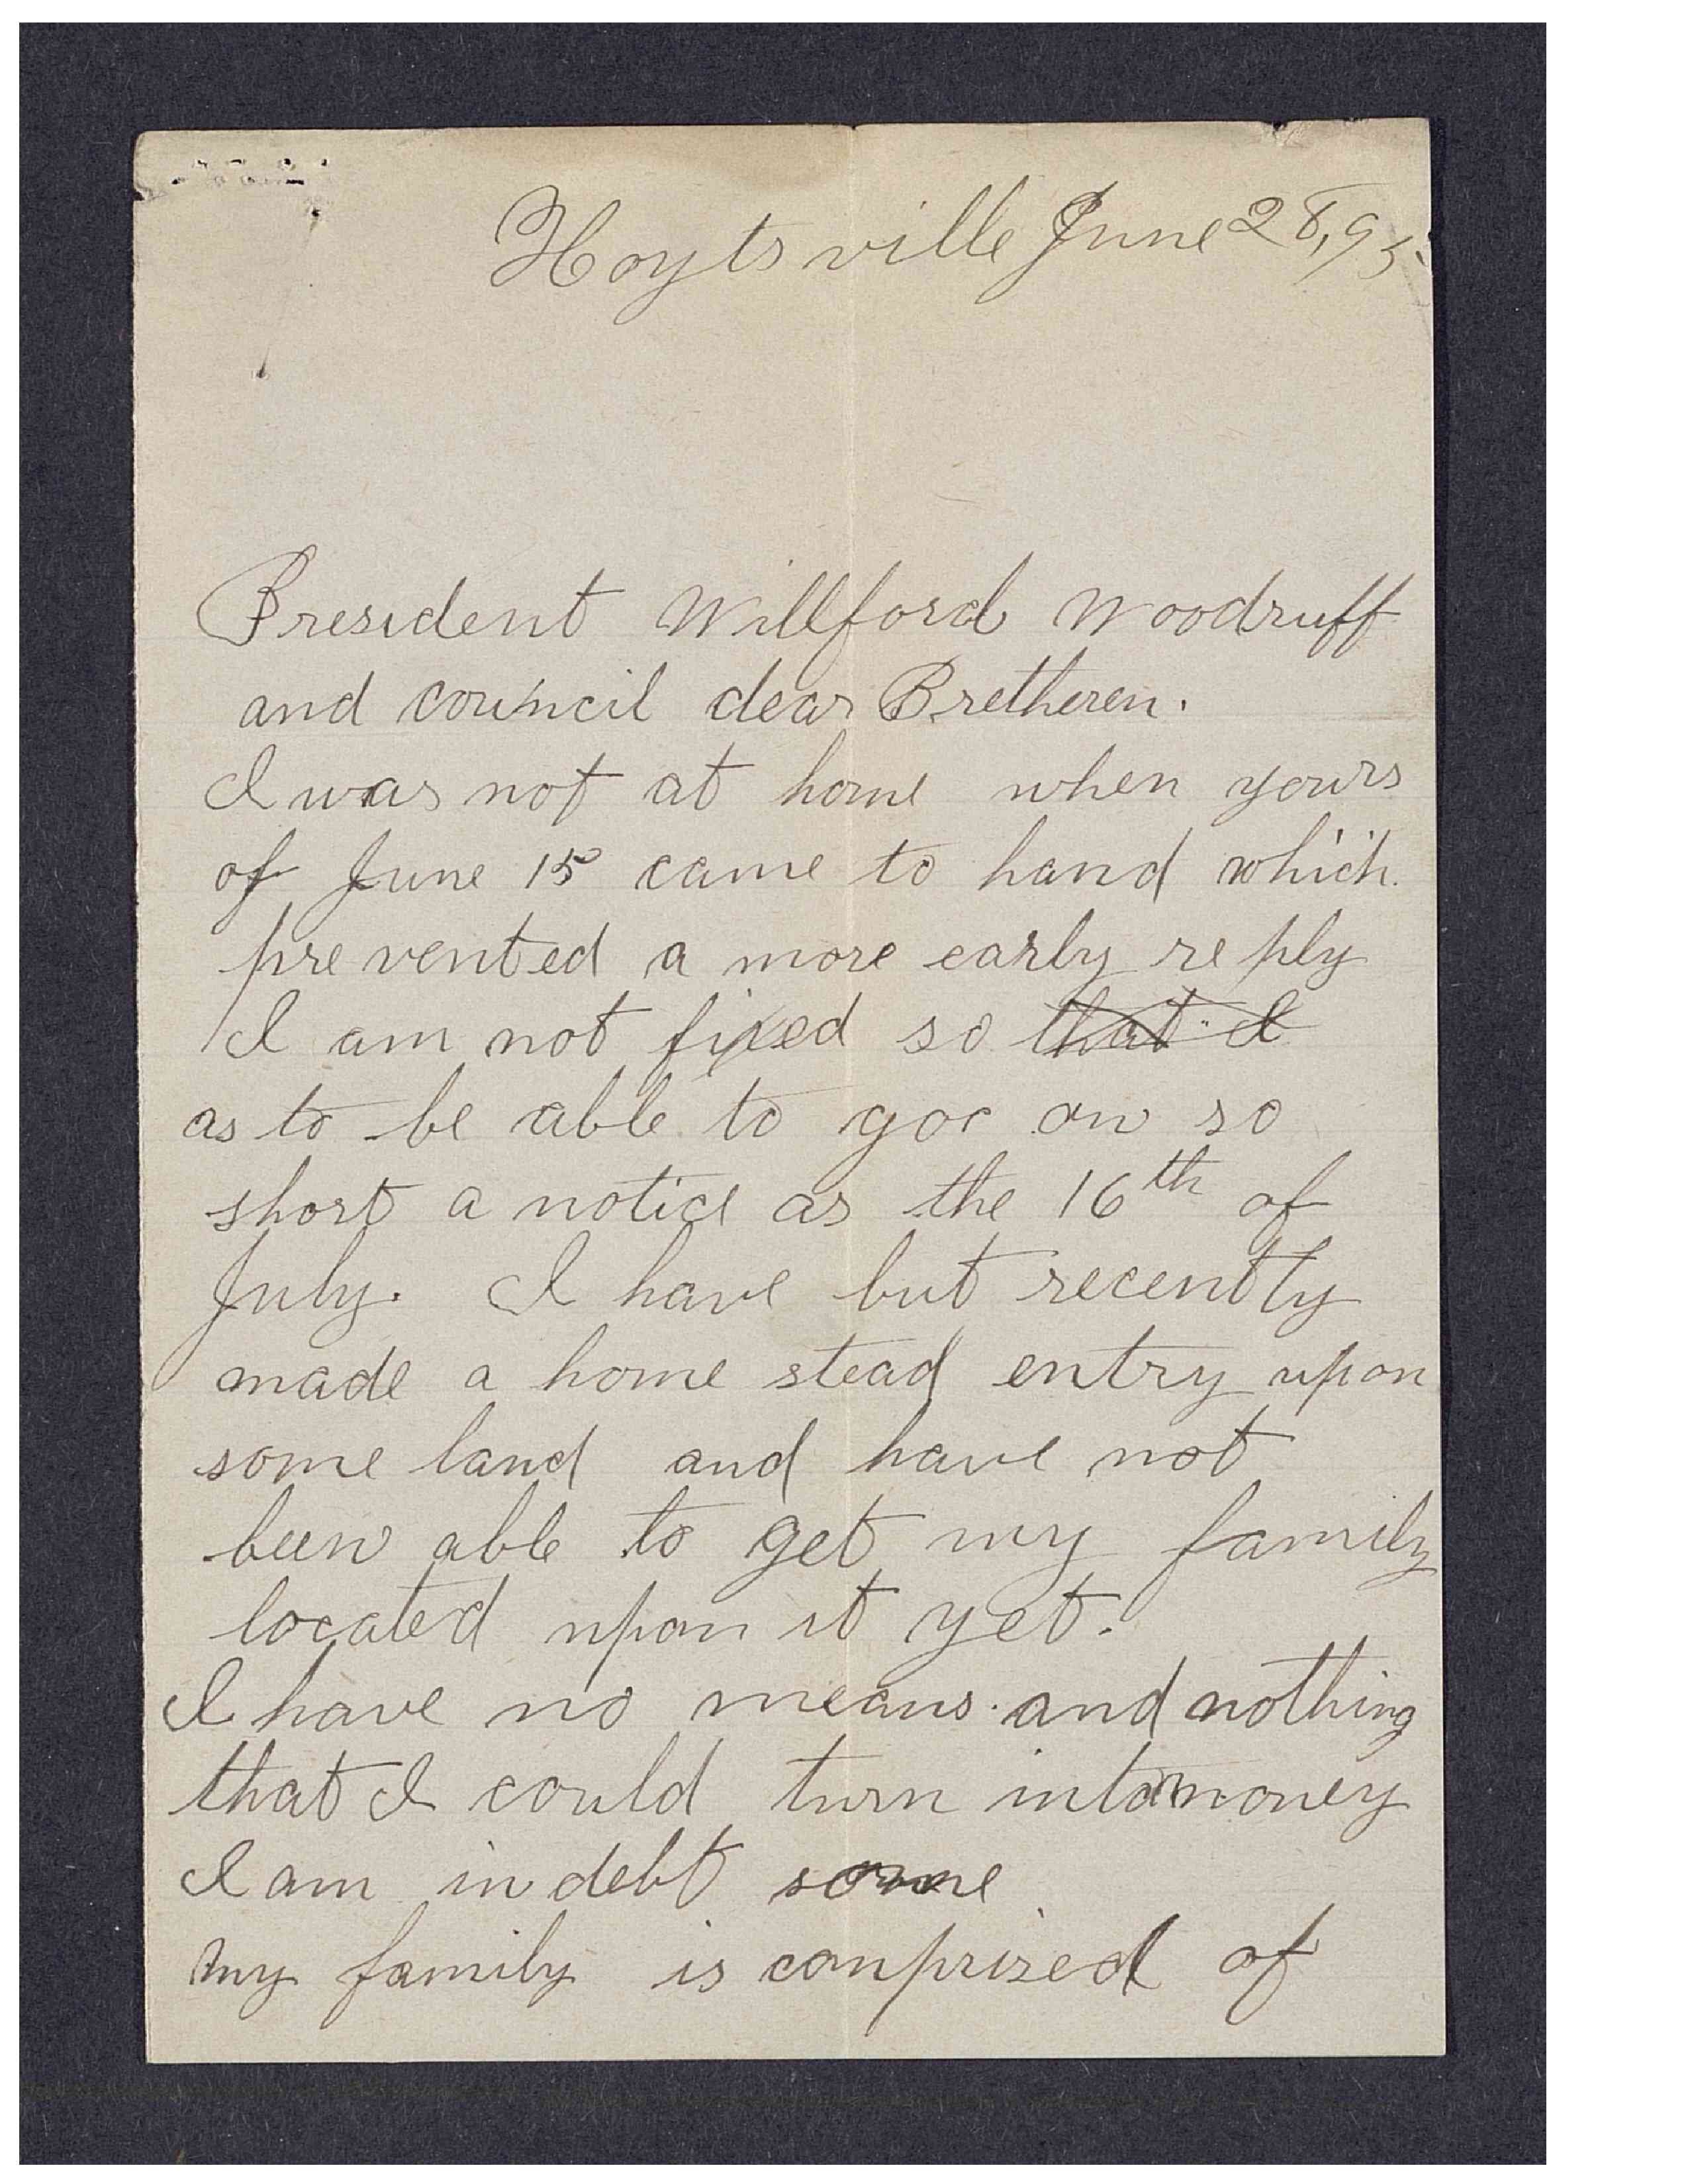 Hoytsville June 28, 95.
President Willford Woodruff
and council dear Bretheren.
I was not at home when yours
of June 15 came to hand which
prevented a more early reply
I am not fixed so that I
as to be able to goe on so
short a notice as the 16th of
July. I have but recently
made a home stead entry upon
some land and have not
been able to get my family
located upon it yet.
I have no means and nothing
that I could turn into money
I am in debt some
my family is conprized of